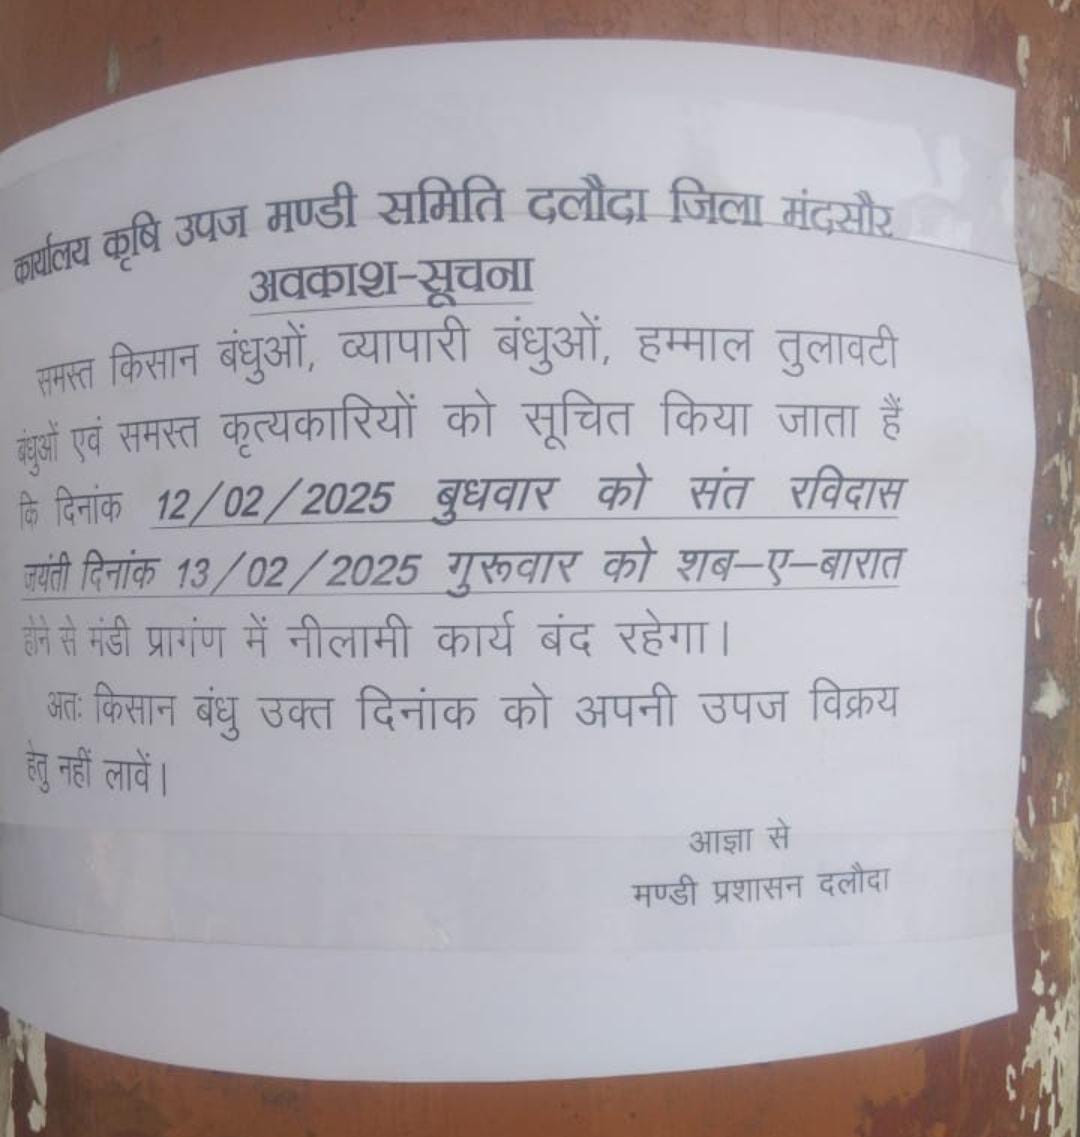 कार्यालय कृषि उपज मण्डी समिति दलौदा जिला मंदसौर
अवकाश-सूचना
समस्त किसान बंधुओं, व्यापारी बंधुओं, हम्माल तुलावटी
बंधुओं एवं समस्त कृत्यकारियों को सूचित किया जाता हैं
कि दिनांक 12/02/2025 बुधवार को संत रविदास
जयंती दिनांक 13/02/2025 गुरूवार को शब-ए-बारात
होने से मंडी प्रागंण में नीलामी कार्य बंद रहेगा।
अतः किसान बंधु उक्त दिनांक को अपनी उपज विक्रय
हेतु नहीं लावें।
आज्ञा से
मण्डी प्रशासन दलौदा